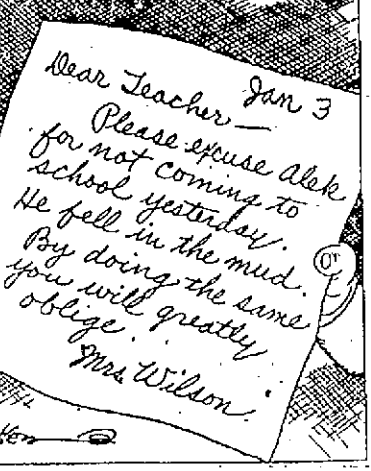 Jan 3
Dear Teacher —
Please excuse Alek
for not coming to
school yesterday.
He fell in the mud.
By doing the same
you will greatly
oblige.
Mrs. Wilson.